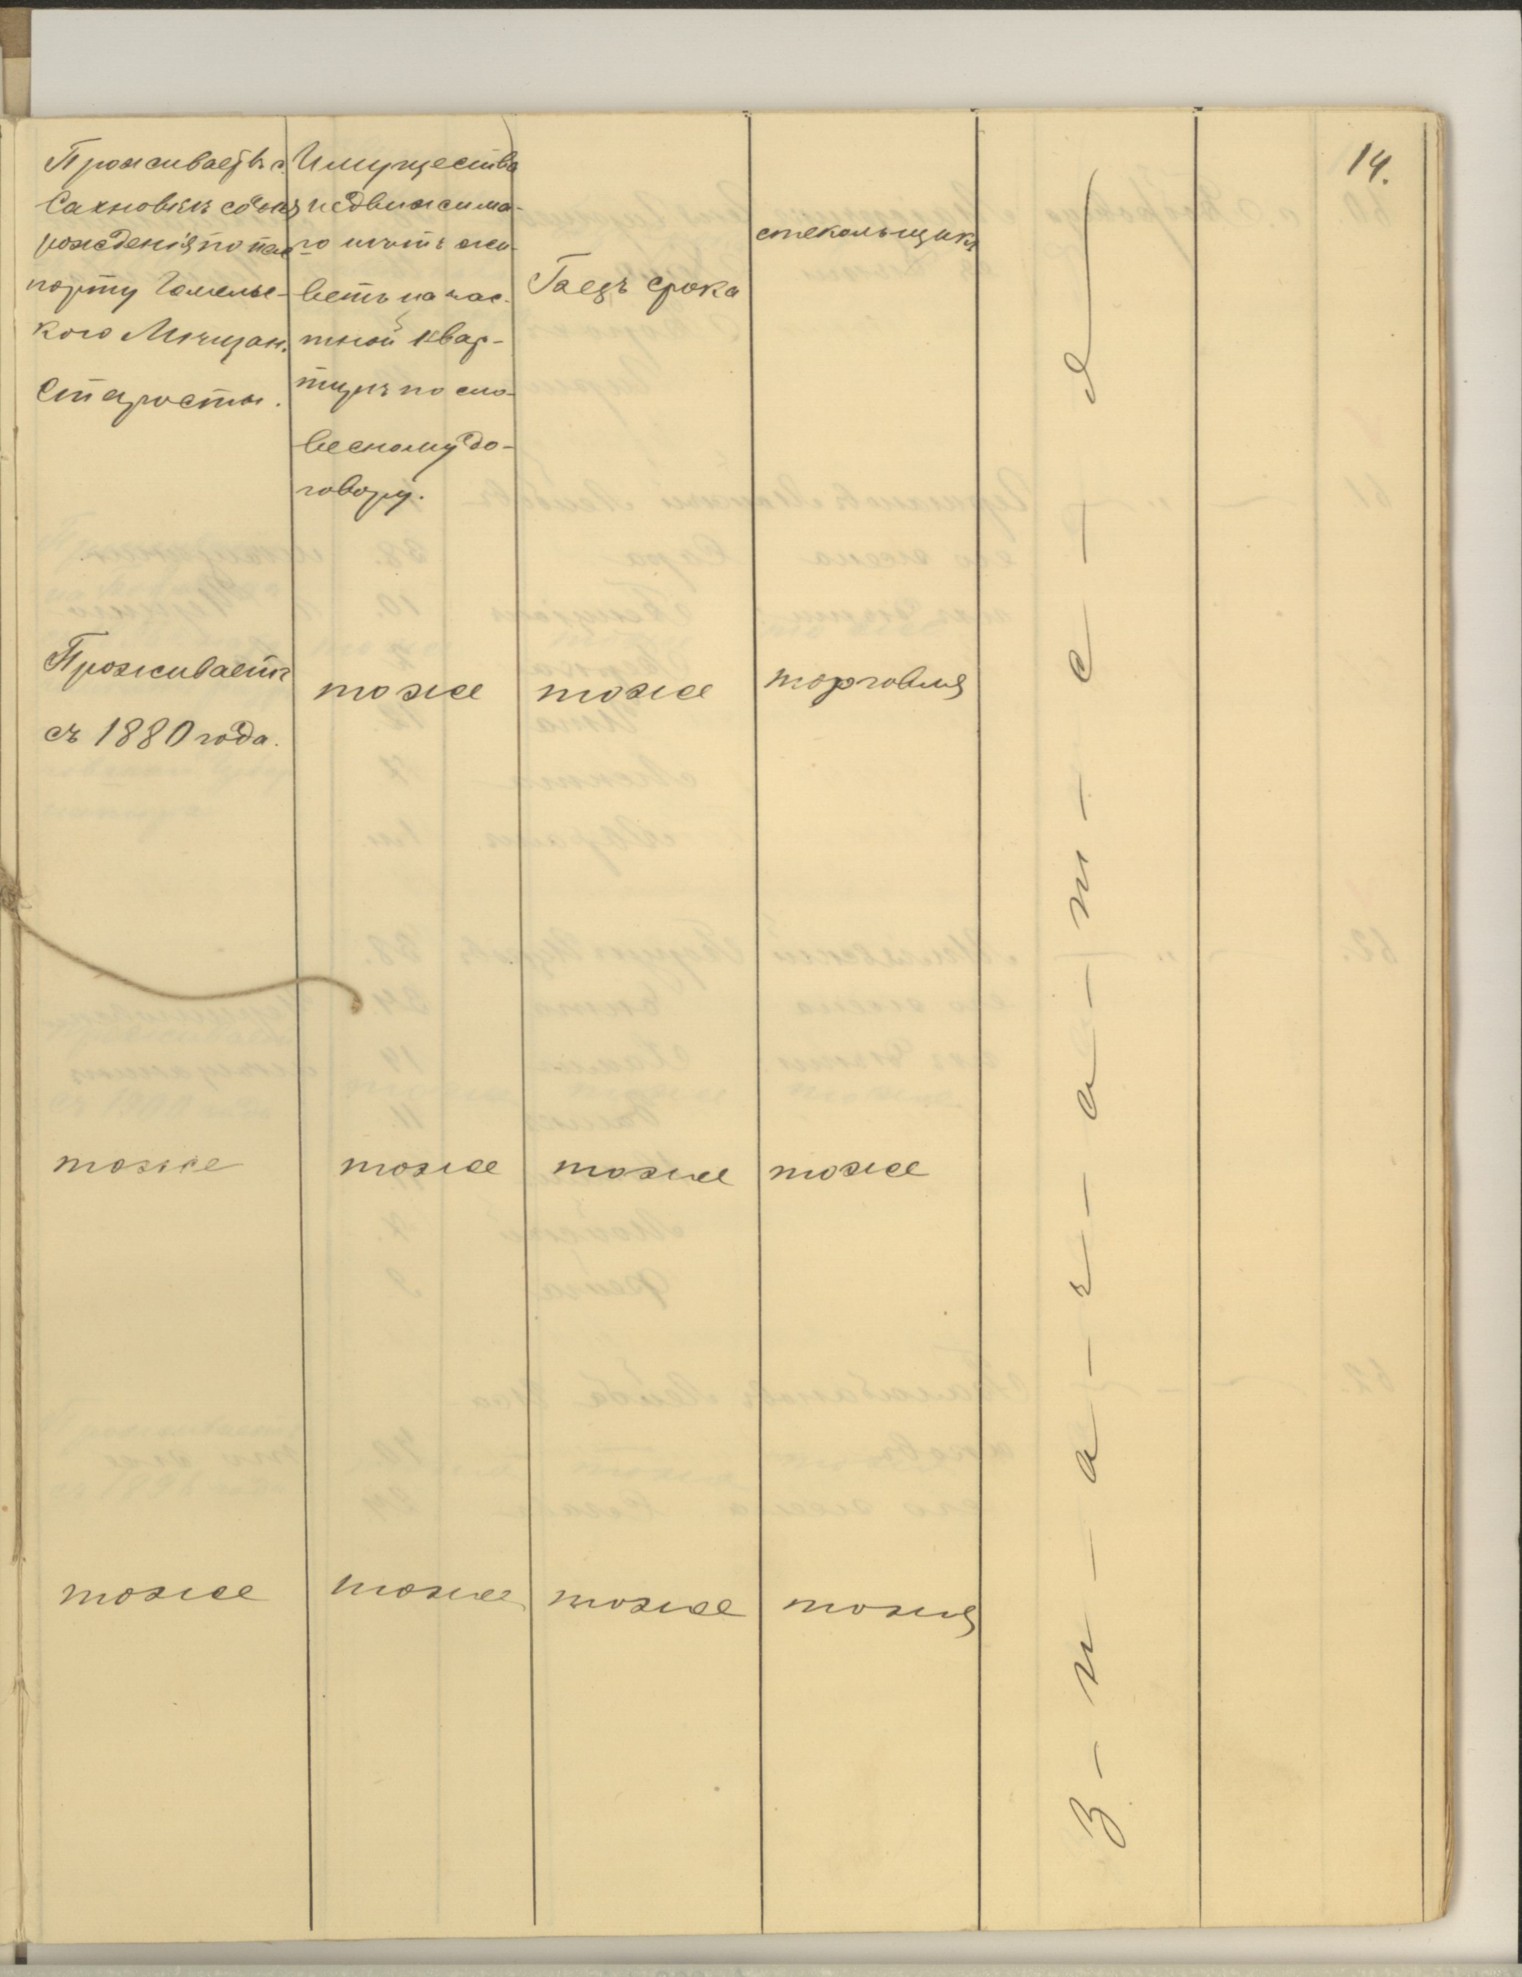 14.
Проживаетъ с.
Сахновкѣ со дня
рожденія по пас-
порту Гомельс-
кого Мѣщан.
Старосты.
Имущества
недвижима-
го нѣтъ жи-
ветъ на час-
тной квар-
тирѣ по сло-
весному до-
говору.
срока
стекольщикъ
Проживаетъ
съ 1880 года.
тоже
тоже
торговля
тоже
тоже
тоже
тоже
тоже
тоже
тоже
тоже